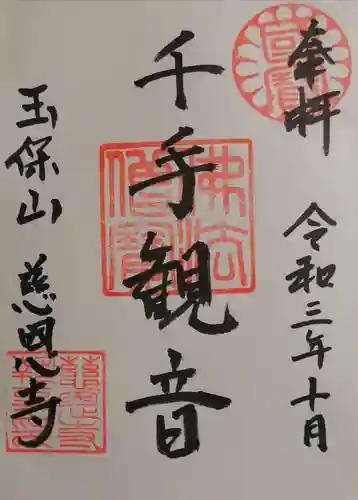 奉拝
令和三年十月
千手観音
佛法僧寶
玉保山
慈恩寺